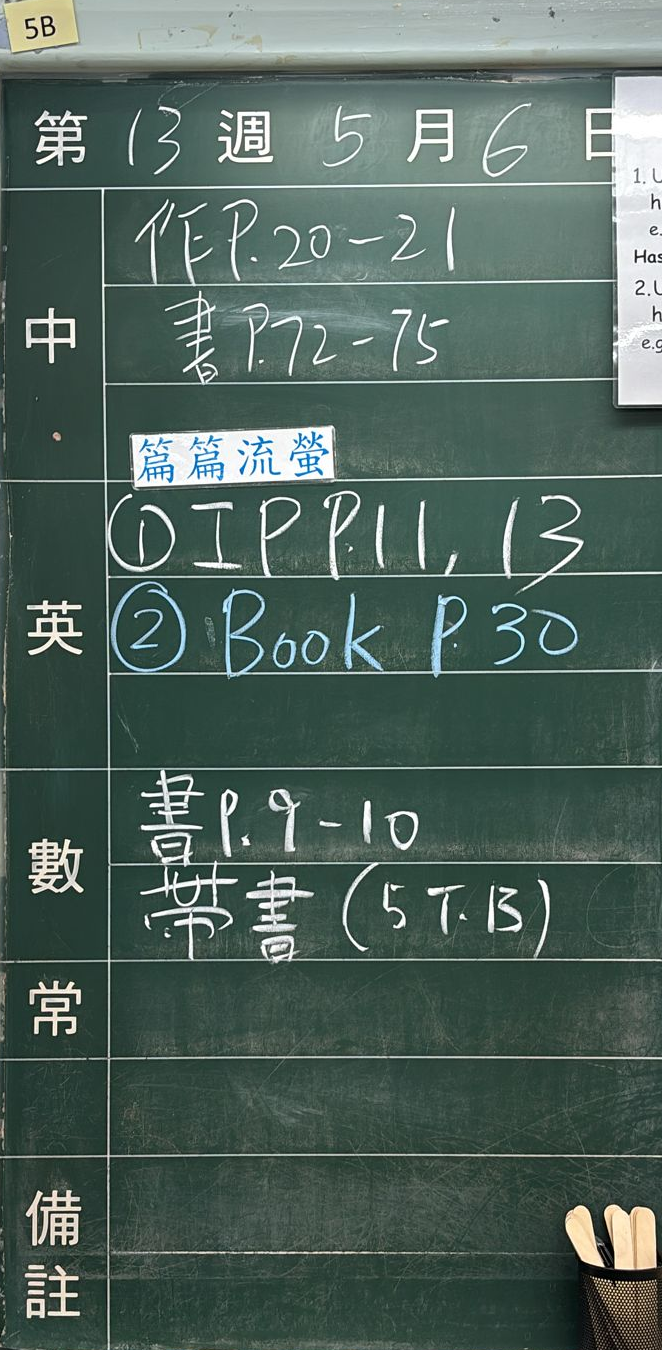 5B
第 13 週 5 月 6 日
中
作P.20-21
書P.72-75
篇篇流螢
英
① IP P.11, 13
② Book P.30
數
書P.9-10
帶書 (5下B)
常
備註
1. U
h
e.
Has
2. U
h
e.g